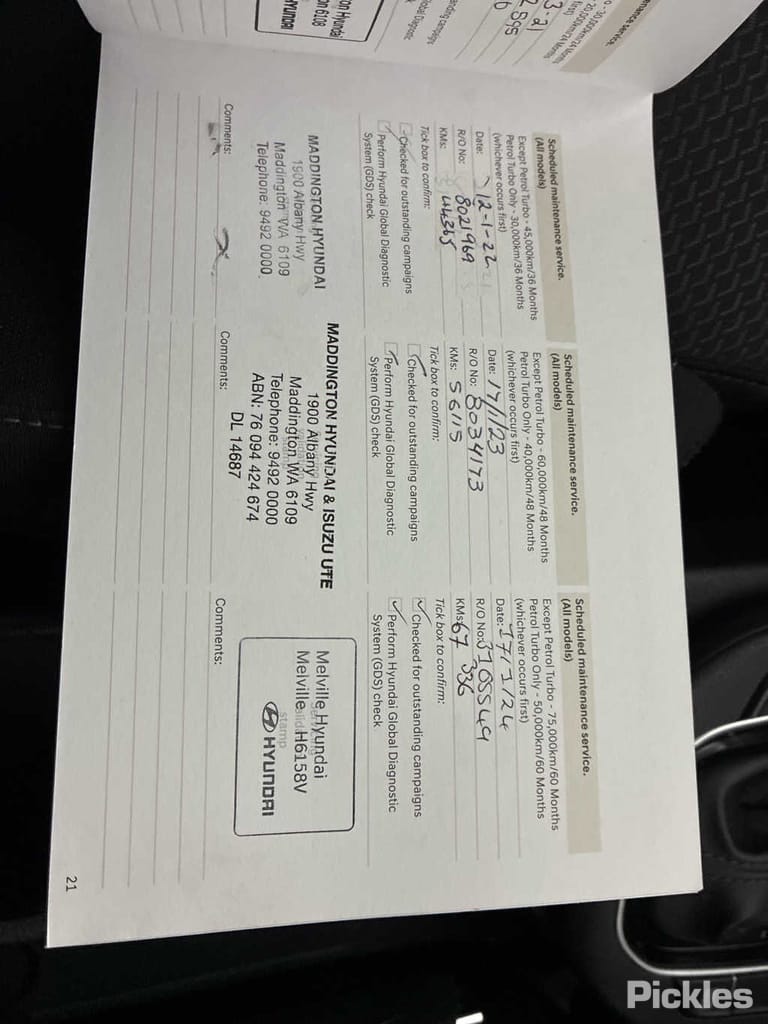 Scheduled maintenance service.
(All models)
Except Petrol Turbo - 45,000km/36 Months
Petrol Turbo Only - 30,000km/36 Months
(whichever occurs first)
Date: 12-1-22
R/O No: 8021969
KMs: 44365
Tick box to confirm:
Checked for outstanding campaigns
Perform Hyundai Global Diagnostic
System (GDS) check
MADDINGTON HYUNDAI
1900 Albany Hwy
Maddington WA 6109
Telephone: 9492 0000
Comments:
Scheduled maintenance service.
(All models)
Except Petrol Turbo - 60,000km/48 Months
Petrol Turbo Only - 40,000km/48 Months
(whichever occurs first)
Date: 17/1/23
R/O No: 8034173
KMs: 56115
Tick box to confirm:
Checked for outstanding campaigns
Perform Hyundai Global Diagnostic
System (GDS) check
MADDINGTON HYUNDAI & ISUZU UTE
1900 Albany Hwy
Maddington WA 6109
Telephone: 9492 0000
ABN: 76 094 424 674
DL 14687
Comments:
Scheduled maintenance service.
(All models)
Except Petrol Turbo - 75,000km/60 Months
Petrol Turbo Only - 50,000km/60 Months
(whichever occurs first)
Date: 17/1/24
R/O No: 3105549
KMs: 67 336
Tick box to confirm:
Checked for outstanding campaigns
Perform Hyundai Global Diagnostic
System (GDS) check
Melville Hyundai
Melville H6158V
stamp
HYUNDAI
Comments:
21
Pickles